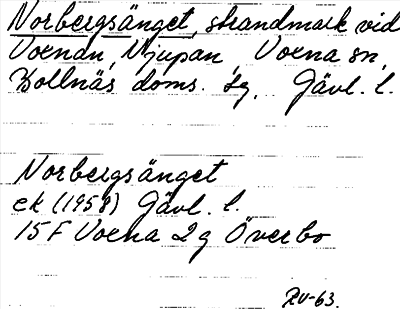 Norbergsänget, strandmark vid
Voxnan, Njupan, Voxna sn,
Bollnäs doms. sg, Gävl. l.
Norbergsänget
ek (1958) Gävl. l.
15F Voxna 2g Överbo
ZV-63.